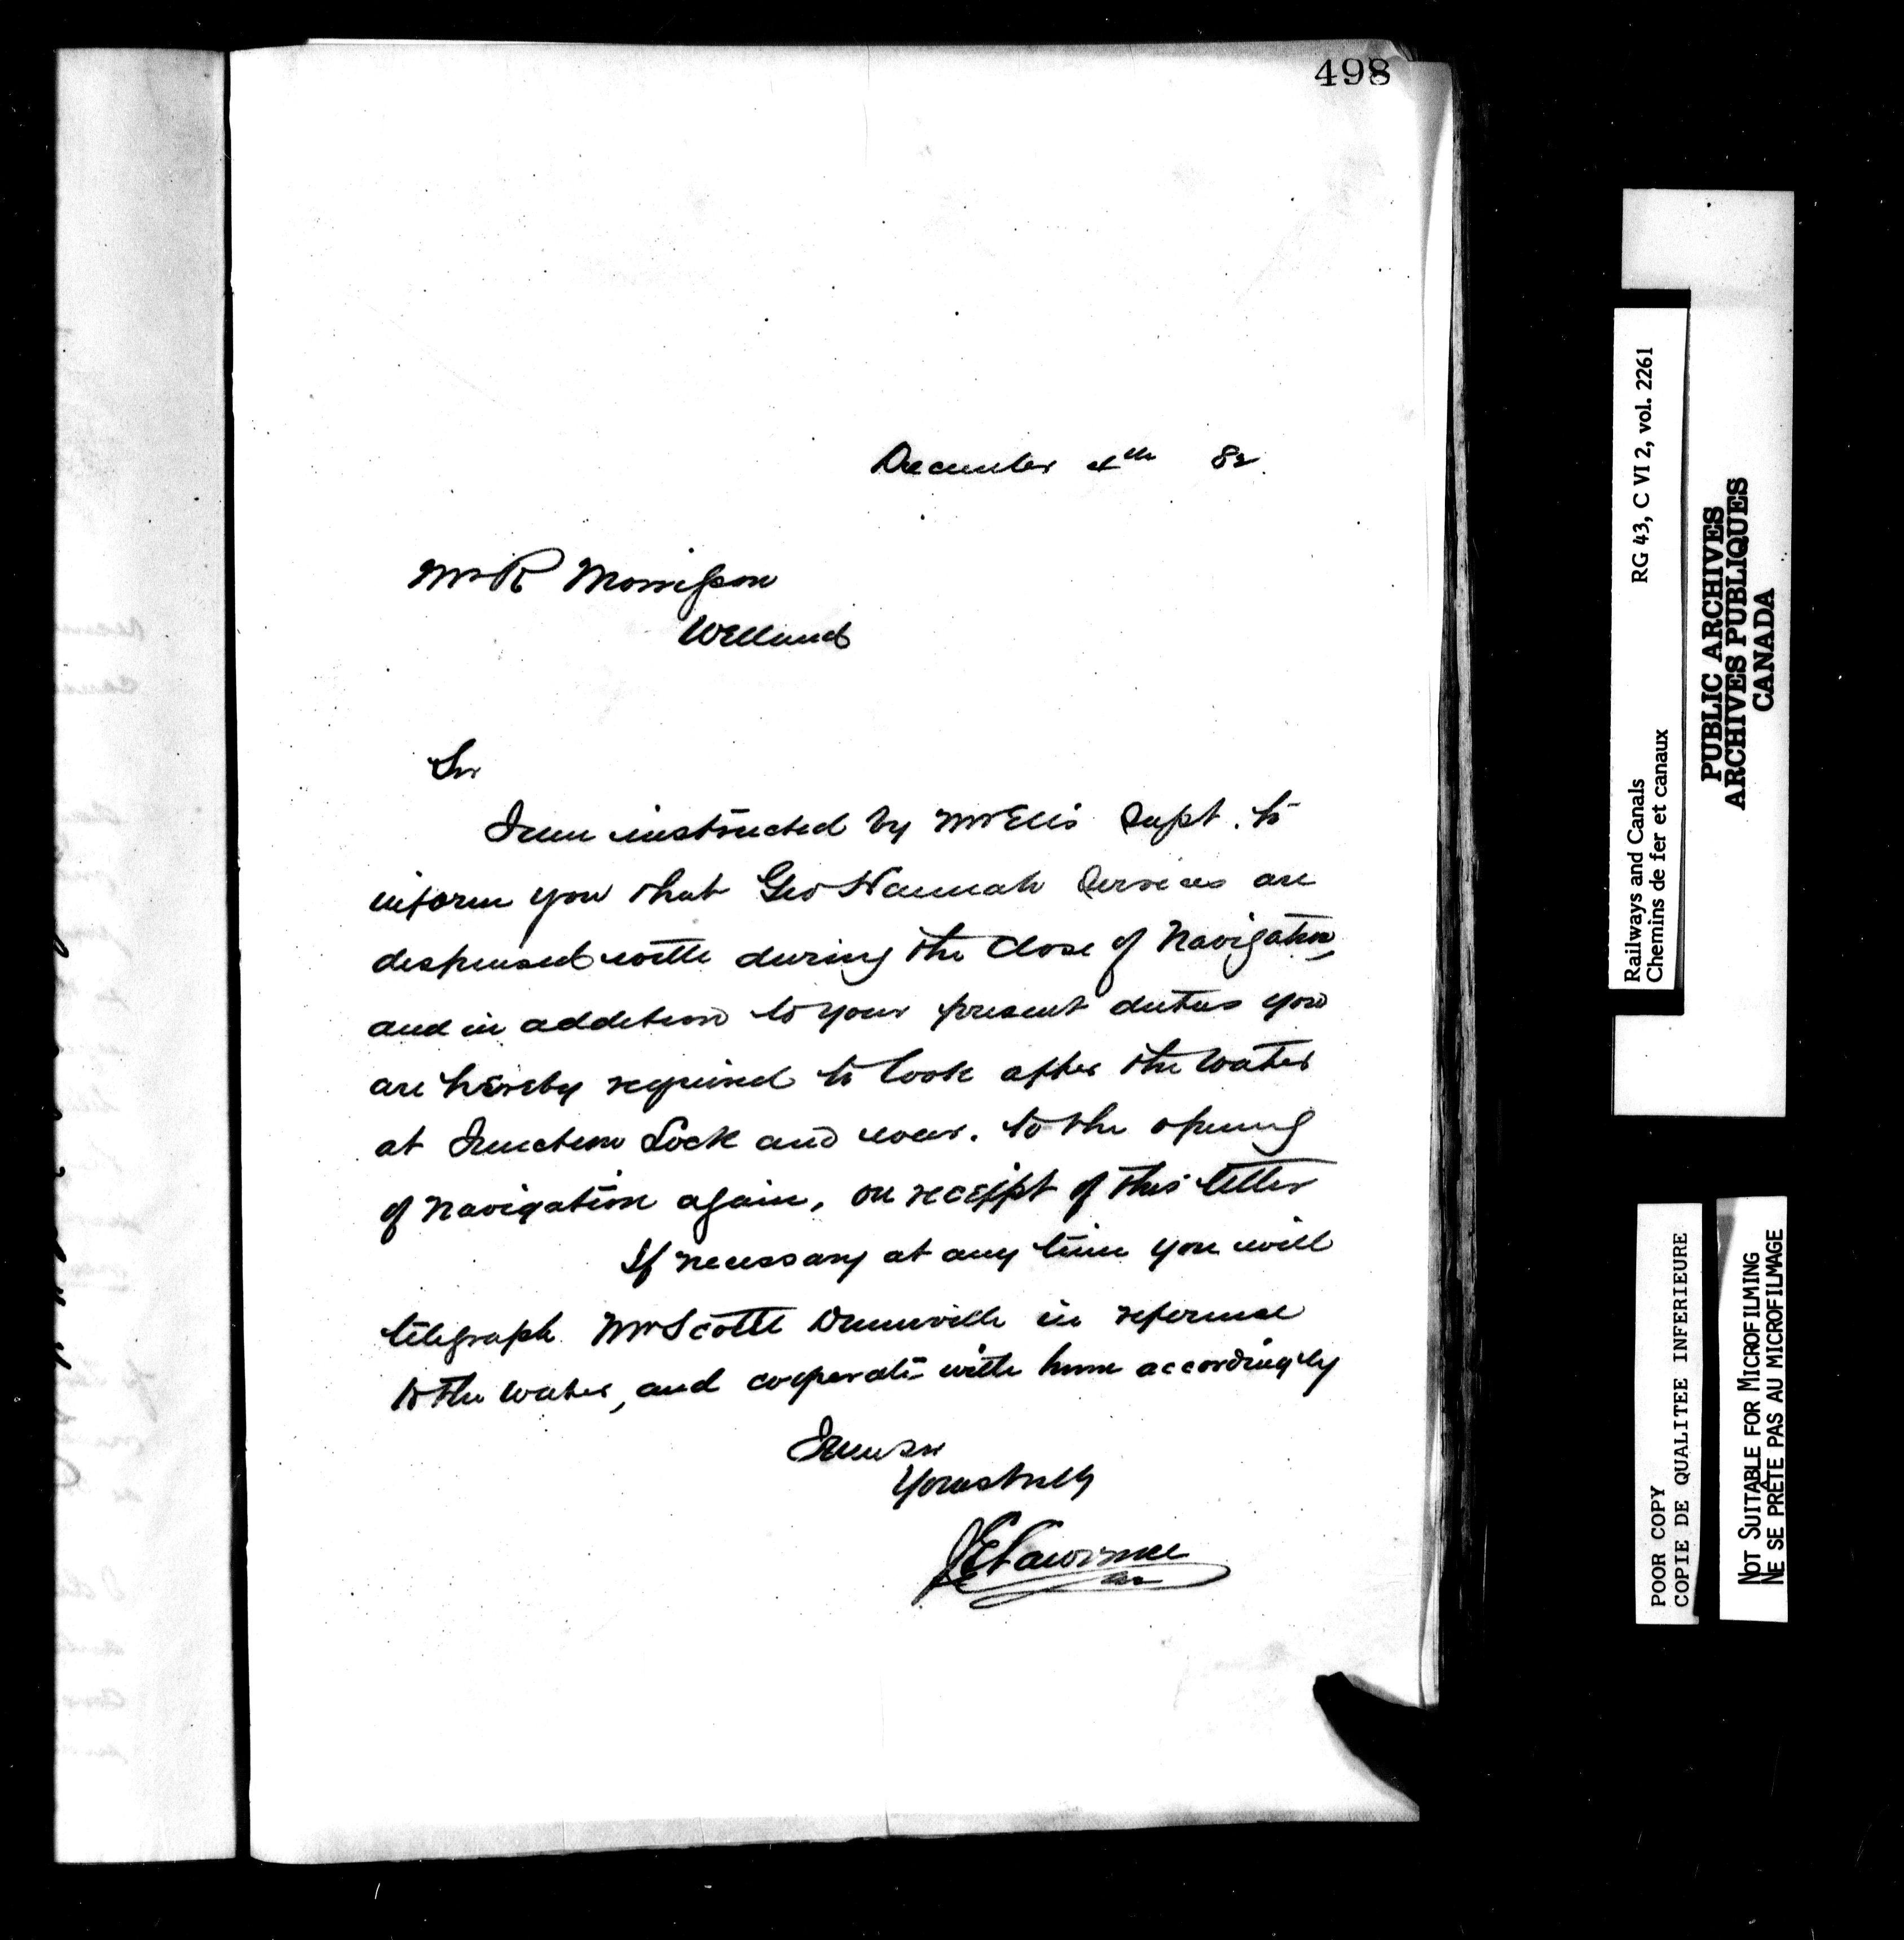 498
December 4th 82.
Mr R Morrisson
Welland
Sir
I am instructed by Mr Ellis Supt. to
inform you that Geo Hannah Services are
dispensed with during the Close of Navigation,
and in addition to your present duties you
are hereby required to look after the water
at Junction Lock and weir. to the opening
of navigation again, on receipt of this letter
If necessary at any time you will
telegraph Mr Scott Dunnville in reference
to the water, and cooperate with him accordingly
I am Sir
Yours truly
J E Lawrence
Railways and Canals RG 43, C VI 2, vol. 2261
Chemins de fer et canaux
PUBLIC ARCHIVES
ARCHIVES PUBLIQUES
CANADA
POOR COPY
COPIE DE QUALITEE INFERIEURE
NOT SUITABLE FOR MICROFILMING
NE SE PRÊTE PAS AU MICROFILMAGE